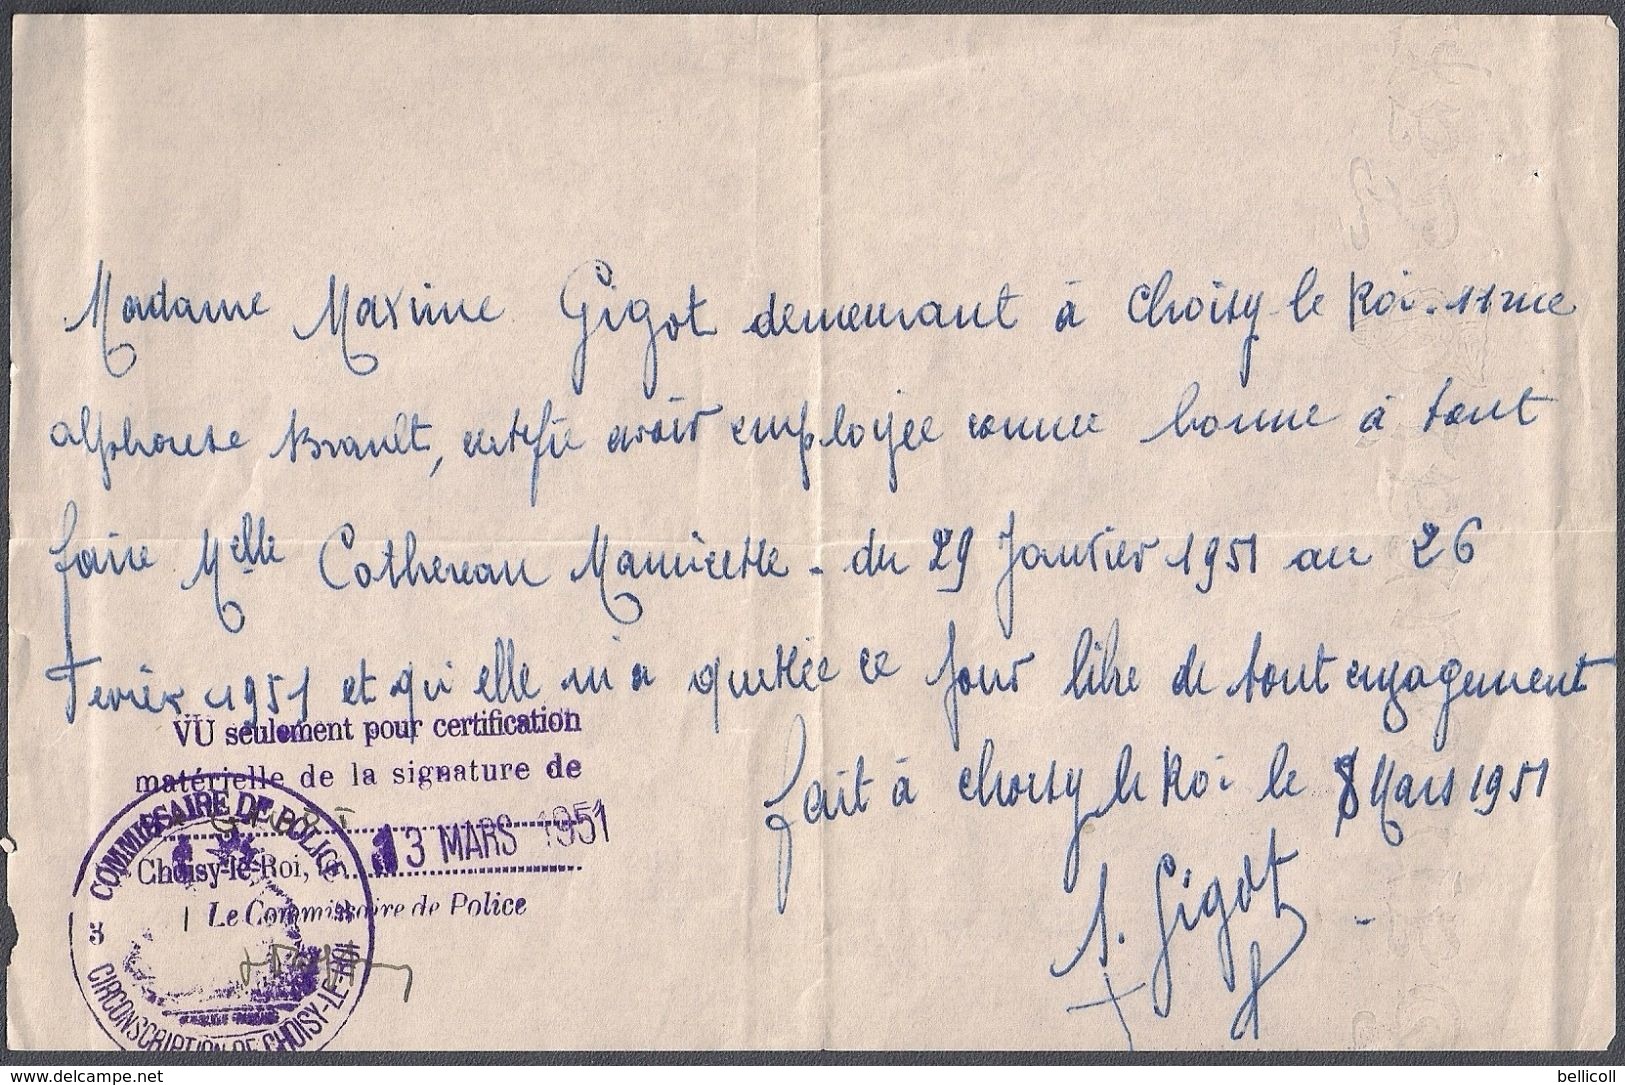 Madame Maxime Gigot demeurant à Choisy-le Roi. 11 rue
alphonse Brault, certifie avoir employée comme bonne à tout
faire Melle Cothereau Mauricette - du 29 Janvier 1951 au 26
Fevrier 1951 et qu'elle m'a quittée ce jour libre de tout engagement
fait à Choisy le Roi le 8 Mars 1951
VU seulement pour certification
matérielle de la signature de
13 MARS 1951
Choisy-le-Roi,
Le Commissaire de Police
COMMISSAIRE DE POLICE
CIRCONSCRIPTION DE CHOISY-LE-ROI
3
Gigot
www.delcampe.net
bellicoll